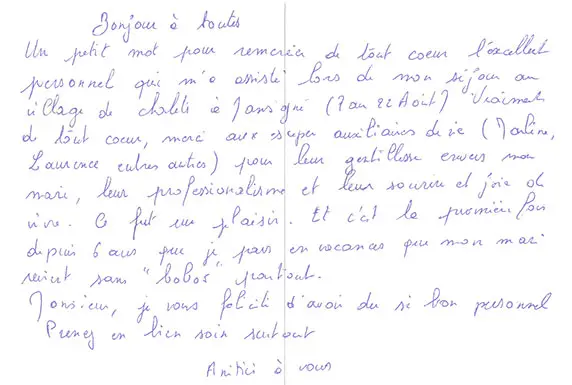 Bonjour à toutes
Un petit mot pour remercier de tout coeur l'excellent
personnel qui m'a assisté lors de mon séjour au
village de chalets à Jansigné (7 au 22 Août) Vraiment
de tout coeur, merci aux super auxiliaires de vie (Marlène,
Laurence entres autres) pour leur gentillesse envers mon
mari, leur professionalisme et leur sourire et joie de
vivre. Ce fut un plaisir. Et c'est la première fois
depuis 6 ans que je pars en vacances que mon mari
revient sans "bobos" partout.
Monsieur, je vous félicite d'avoir du si bon personnel
Prenez en bien soin surtout
Amitiés à vous